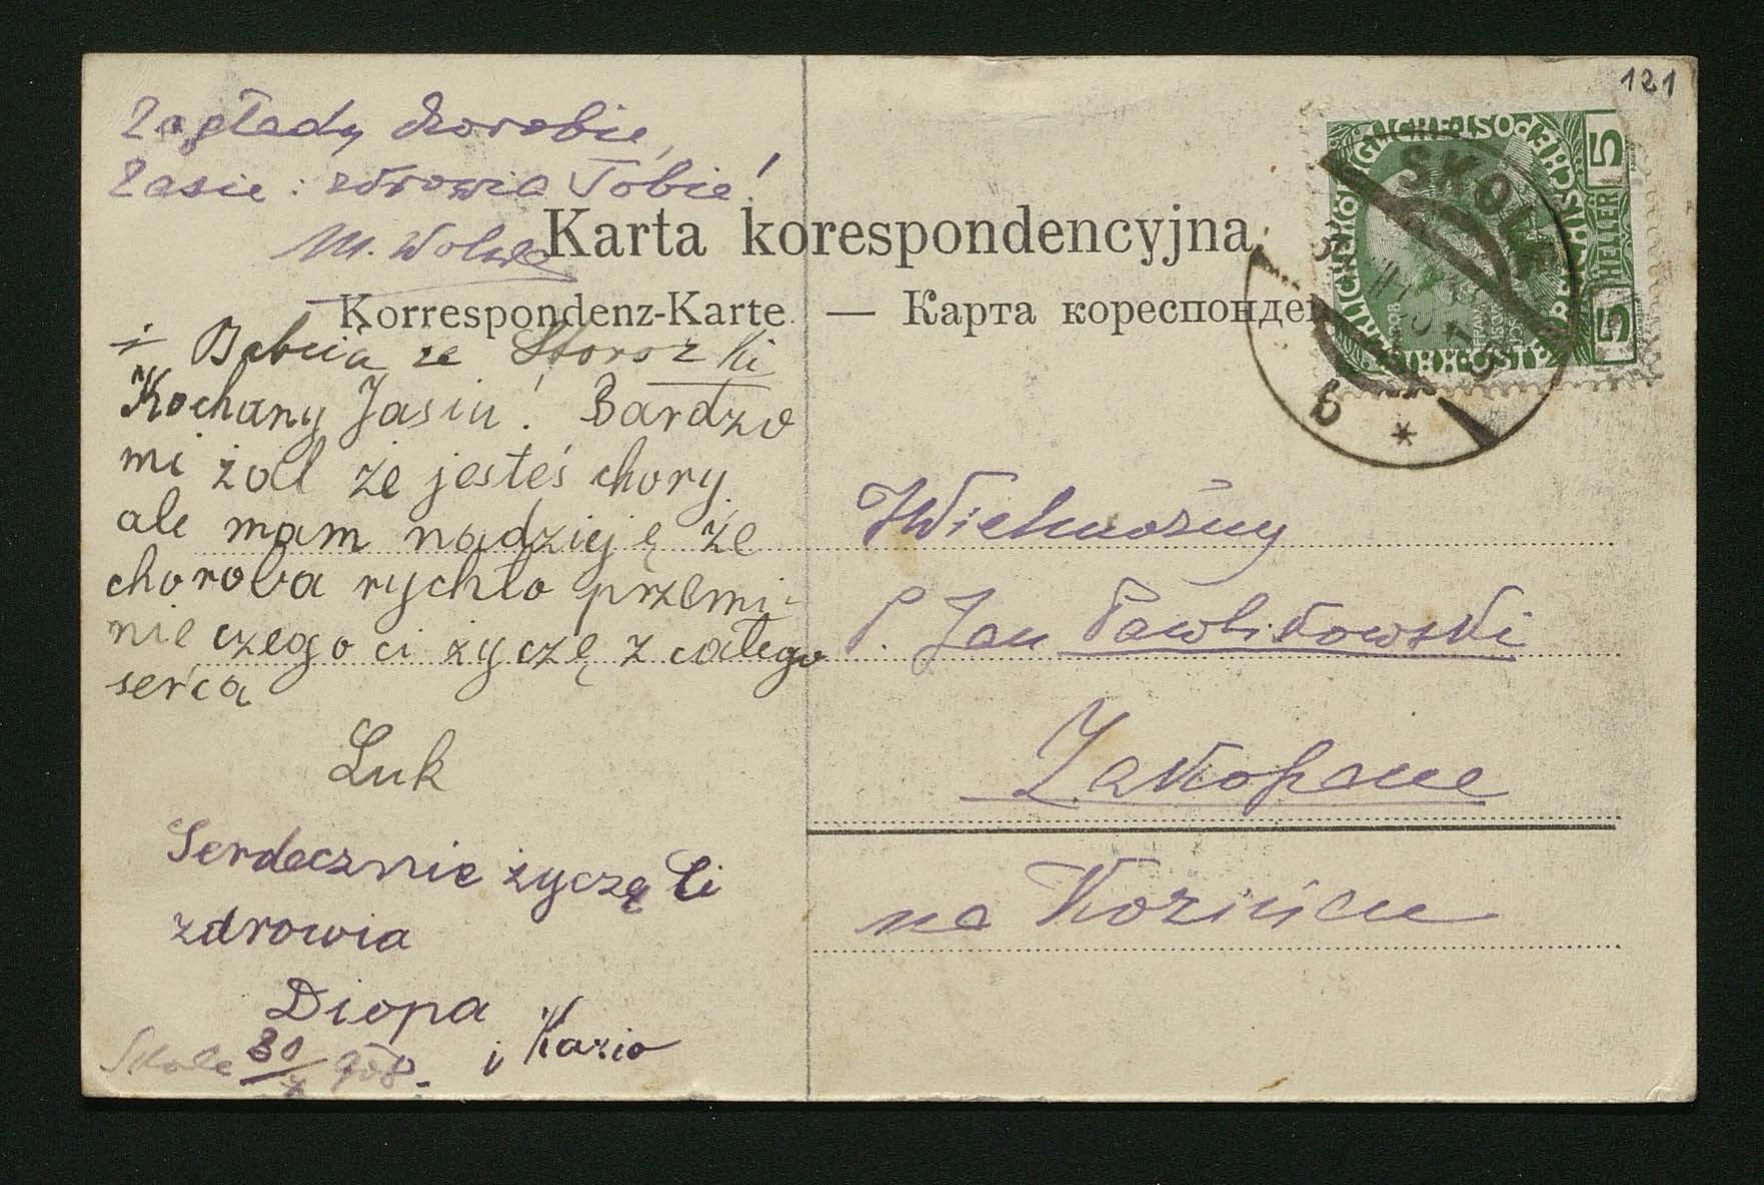 121
Zagłady chorobie,
Zasie: zdrowia Tobie!
M. Wolska
Karta korespondencyjna
Korrespondenz-Karte — Карта кореспонден
i Babcia ze Storożki
Kochany Jasiu! Bardzo
mi żal że jesteś chory
ale mam nadzieję że
choroba rychło przemi-
nie czego ci życzę z całego
serca
Luk
Serdecznie życzę Ci
zdrowia
Diopa
i Kazio
Skole 30/X 908.
SKOLE
5 HELLER 5
JWielmożny
P. Jan Pawlikowski
Zakopane
na Kozińcu